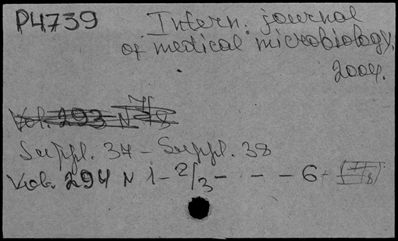 P4739
Intern. journal
of medical microbiology.
2004.
Vol. 293 N 7/8
Suppl. 37 – Suppl. 38
Vol. 294 N 1 – 2/3 – – – 6 –